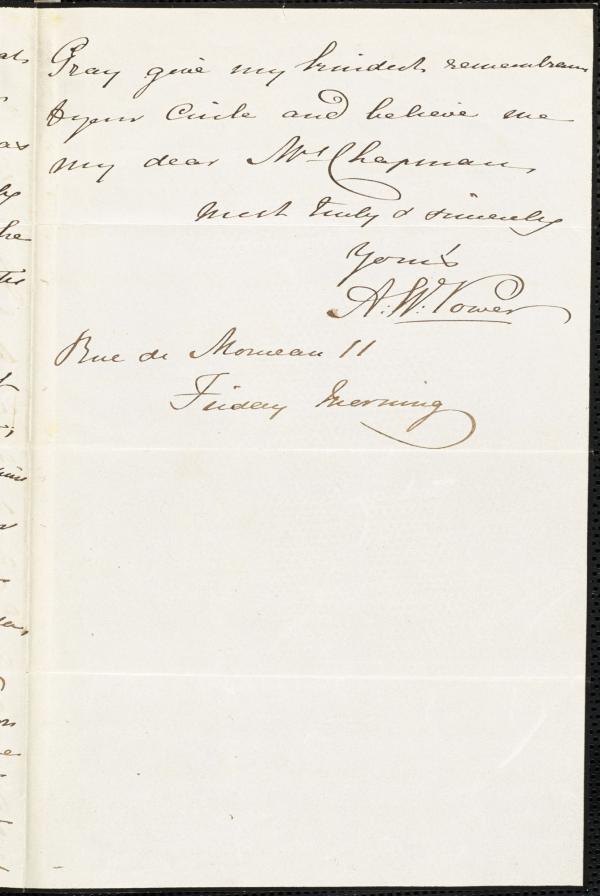 Pray give my kindest remembrances
to your Circle and believe me
my dear Mrs. Chapman,
most truly & sincerely
Yours
A: W: Power
Rue de Morneau 11
Friday Morning